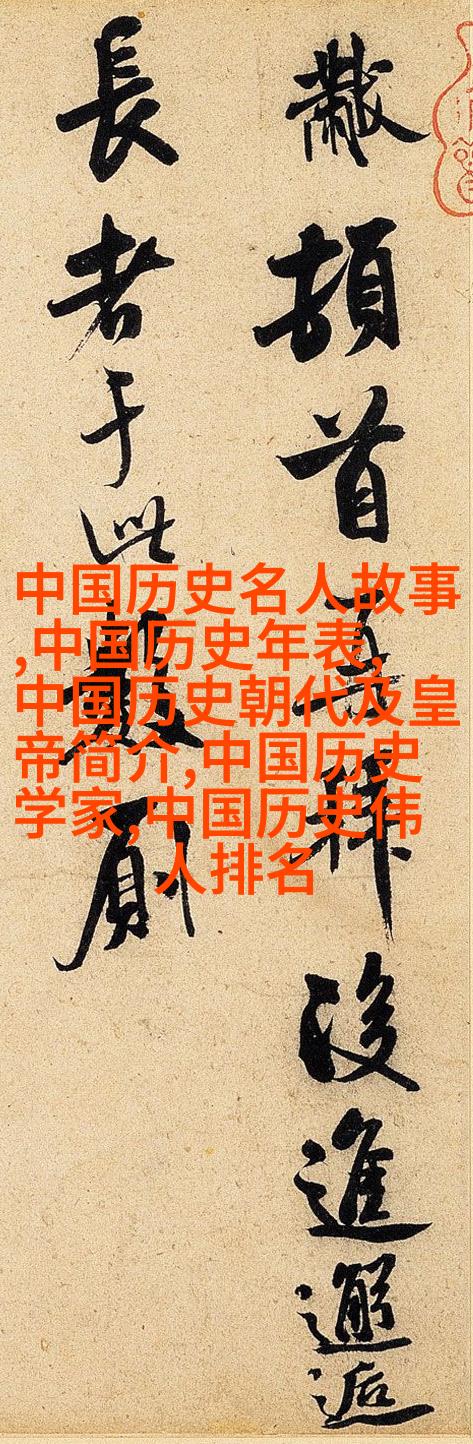 黻頓首再拜後進邂逅
長者于此數厠
中国历史名人故事
,中国历史年表,
中国历史朝代及皇
帝简介,中国历史
学家,中国历史伟
人排名